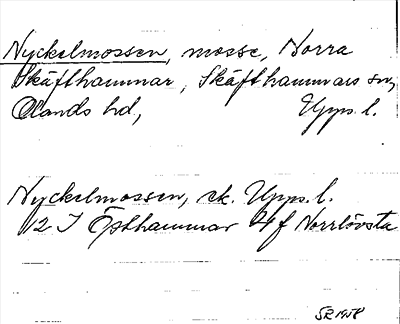 Nyckelmossen, mosse, Norra
Skäfthammar, Skäfthammars sn,
Olands hd, Upps. l.
Nyckelmossen, ek. Upps. l.
12 I Östhammar 4f Norrlövsta
SR 1958